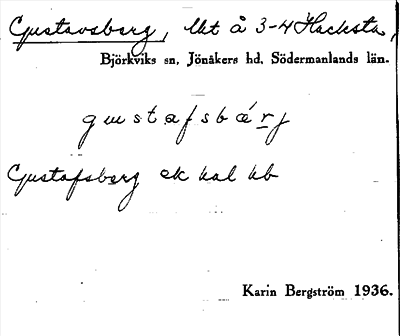 Gustavsberg, lht å 3-4 Hacksta,
Björkviks sn, Jönåkers hd, Södermanlands län.
gustafsbárj
Gustafsberg ek kal hb
Karin Bergström 1936.